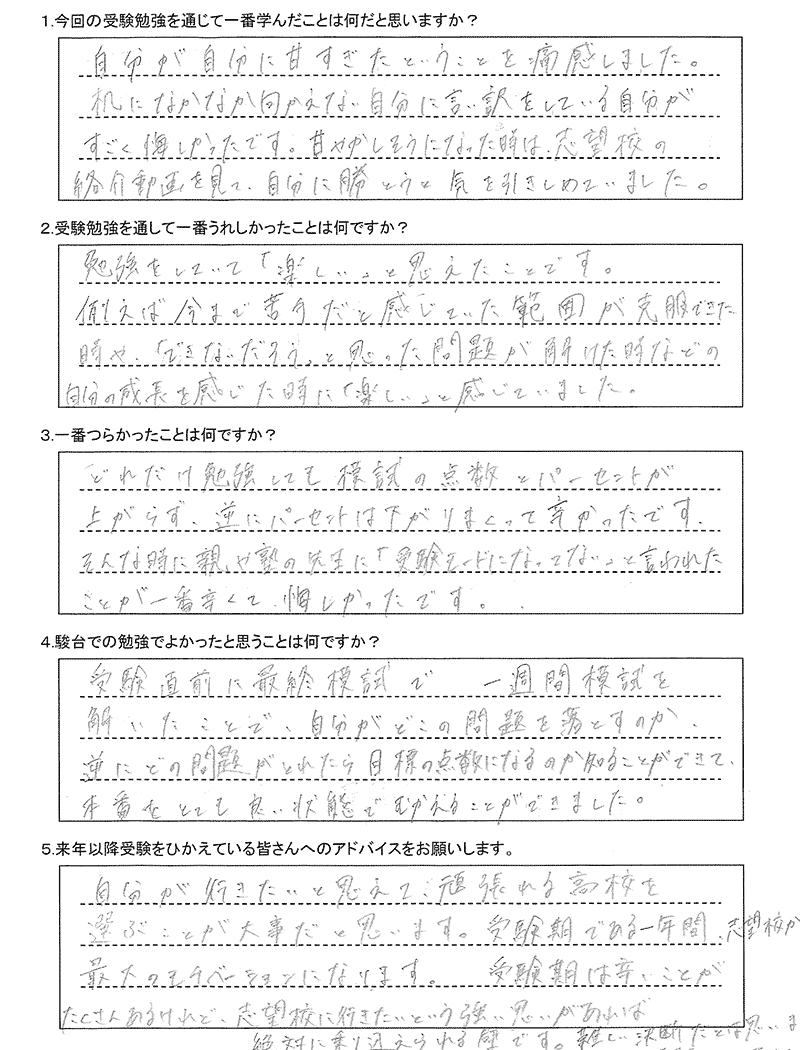 1.今回の受験勉強を通じて一番学んだことは何だと思いますか？
自分が自分に甘すぎたということを痛感しました。
机になかなか向かえない自分に言い訳をしている自分が
すごく悔しかったです。甘やかしそうになった時は、志望校の
紹介動画を見て、自分に勝とうと気を引きしめていました。
2.受験勉強を通して一番うれしかったことは何ですか？
勉強をしていて「楽しい」と思えたことです。
例えば今まで苦手だと感じていた範囲が克服できた
時や、「できないだろう」と思った問題が解けた時などの
自分の成長を感じた時に「楽しい」と感じていました。
3.一番つらかったことは何ですか？
どれだけ勉強しても模試の点数とパーセントが
上がらず、逆にパーセントは下がりまくって辛かったです。
そんな時に親や塾の先生に「受験モードになってない」と言われた
ことが一番辛くて、悔しかったです。
4.駿台での勉強でよかったと思うことは何ですか？
受験直前に最終模試で 一週間模試を
解いたことで、自分がどこの問題を落とすのか、
逆にどの問題がとれたら目標の点数になるのか知ることができて、
本番をとても良い状態でむかえることができました。
5.来年以降受験をひかえている皆さんへのアドバイスをお願いします。
自分が行きたいと思えて、頑張れる高校を
選ぶことが大事だと思います。受験期である一年間、志望校が
最大のモチベーションになります。 受験期は辛いことが
たくさんあるけれど、志望校に行きたいという強い思いがあれば
絶対に乗り越えられる壁です。難しい決断だとは思いま